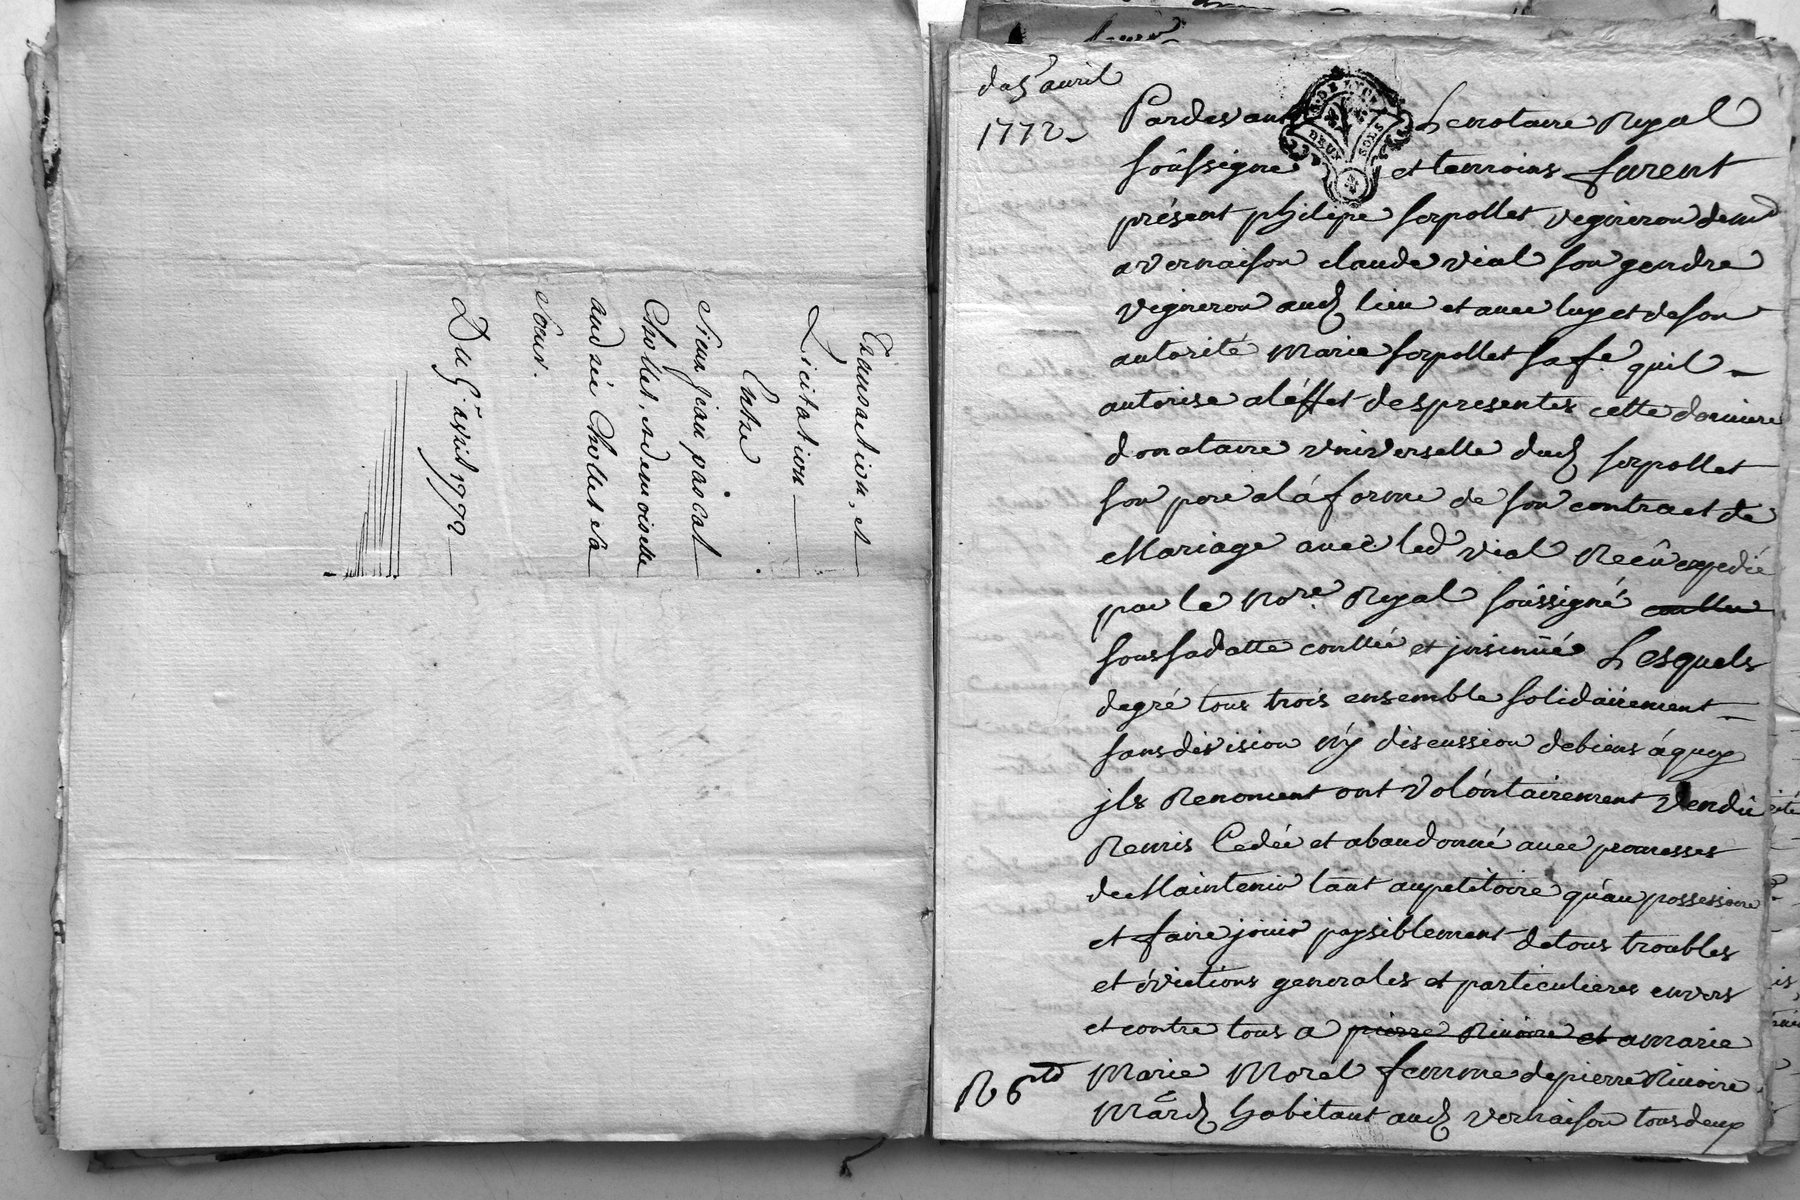 Transaction, et
Licitation
Entre
Sieur jean pascal
Chollet, et demoiselle
andrée Chollet sa
soeur.
Du 5 avril 1772
du 5 avril
1772
G. DE LYON
DEUX SOLS
Pardevant Le notaire Royal
soussigné et temoins furent
présent philipe serpollet vigneron dem^t
a vernaison claude vial son gendre
vigneron aud lieu et avec luy et de son
autorité marie serpollet sa f^e quil
autorise a léffet des presentes cette derniere
donataire universelle dud serpollet
son pere a lá forme de son contract de
Mariage avec led vial Recû expedié
par le no^re Royal soussigné
sous sa datte conllée et jnsinüé Lesquels
de gré tous trois ensemble solidairement
sans division ny discussion de biens á quoy
jls Renoncent ont volóntairement vendu
Remis Cedée et abandonné avec promesses
de Maintenir tant au petitoire qu'au possessoire
et faire jouir paysiblement de tous troubles
et évictions generales et particulieres envers
et contre tous a pierre Rivoire et a marie
Marie Morel femme de pierre Rivoire
March habitant aud vernaison tous deux